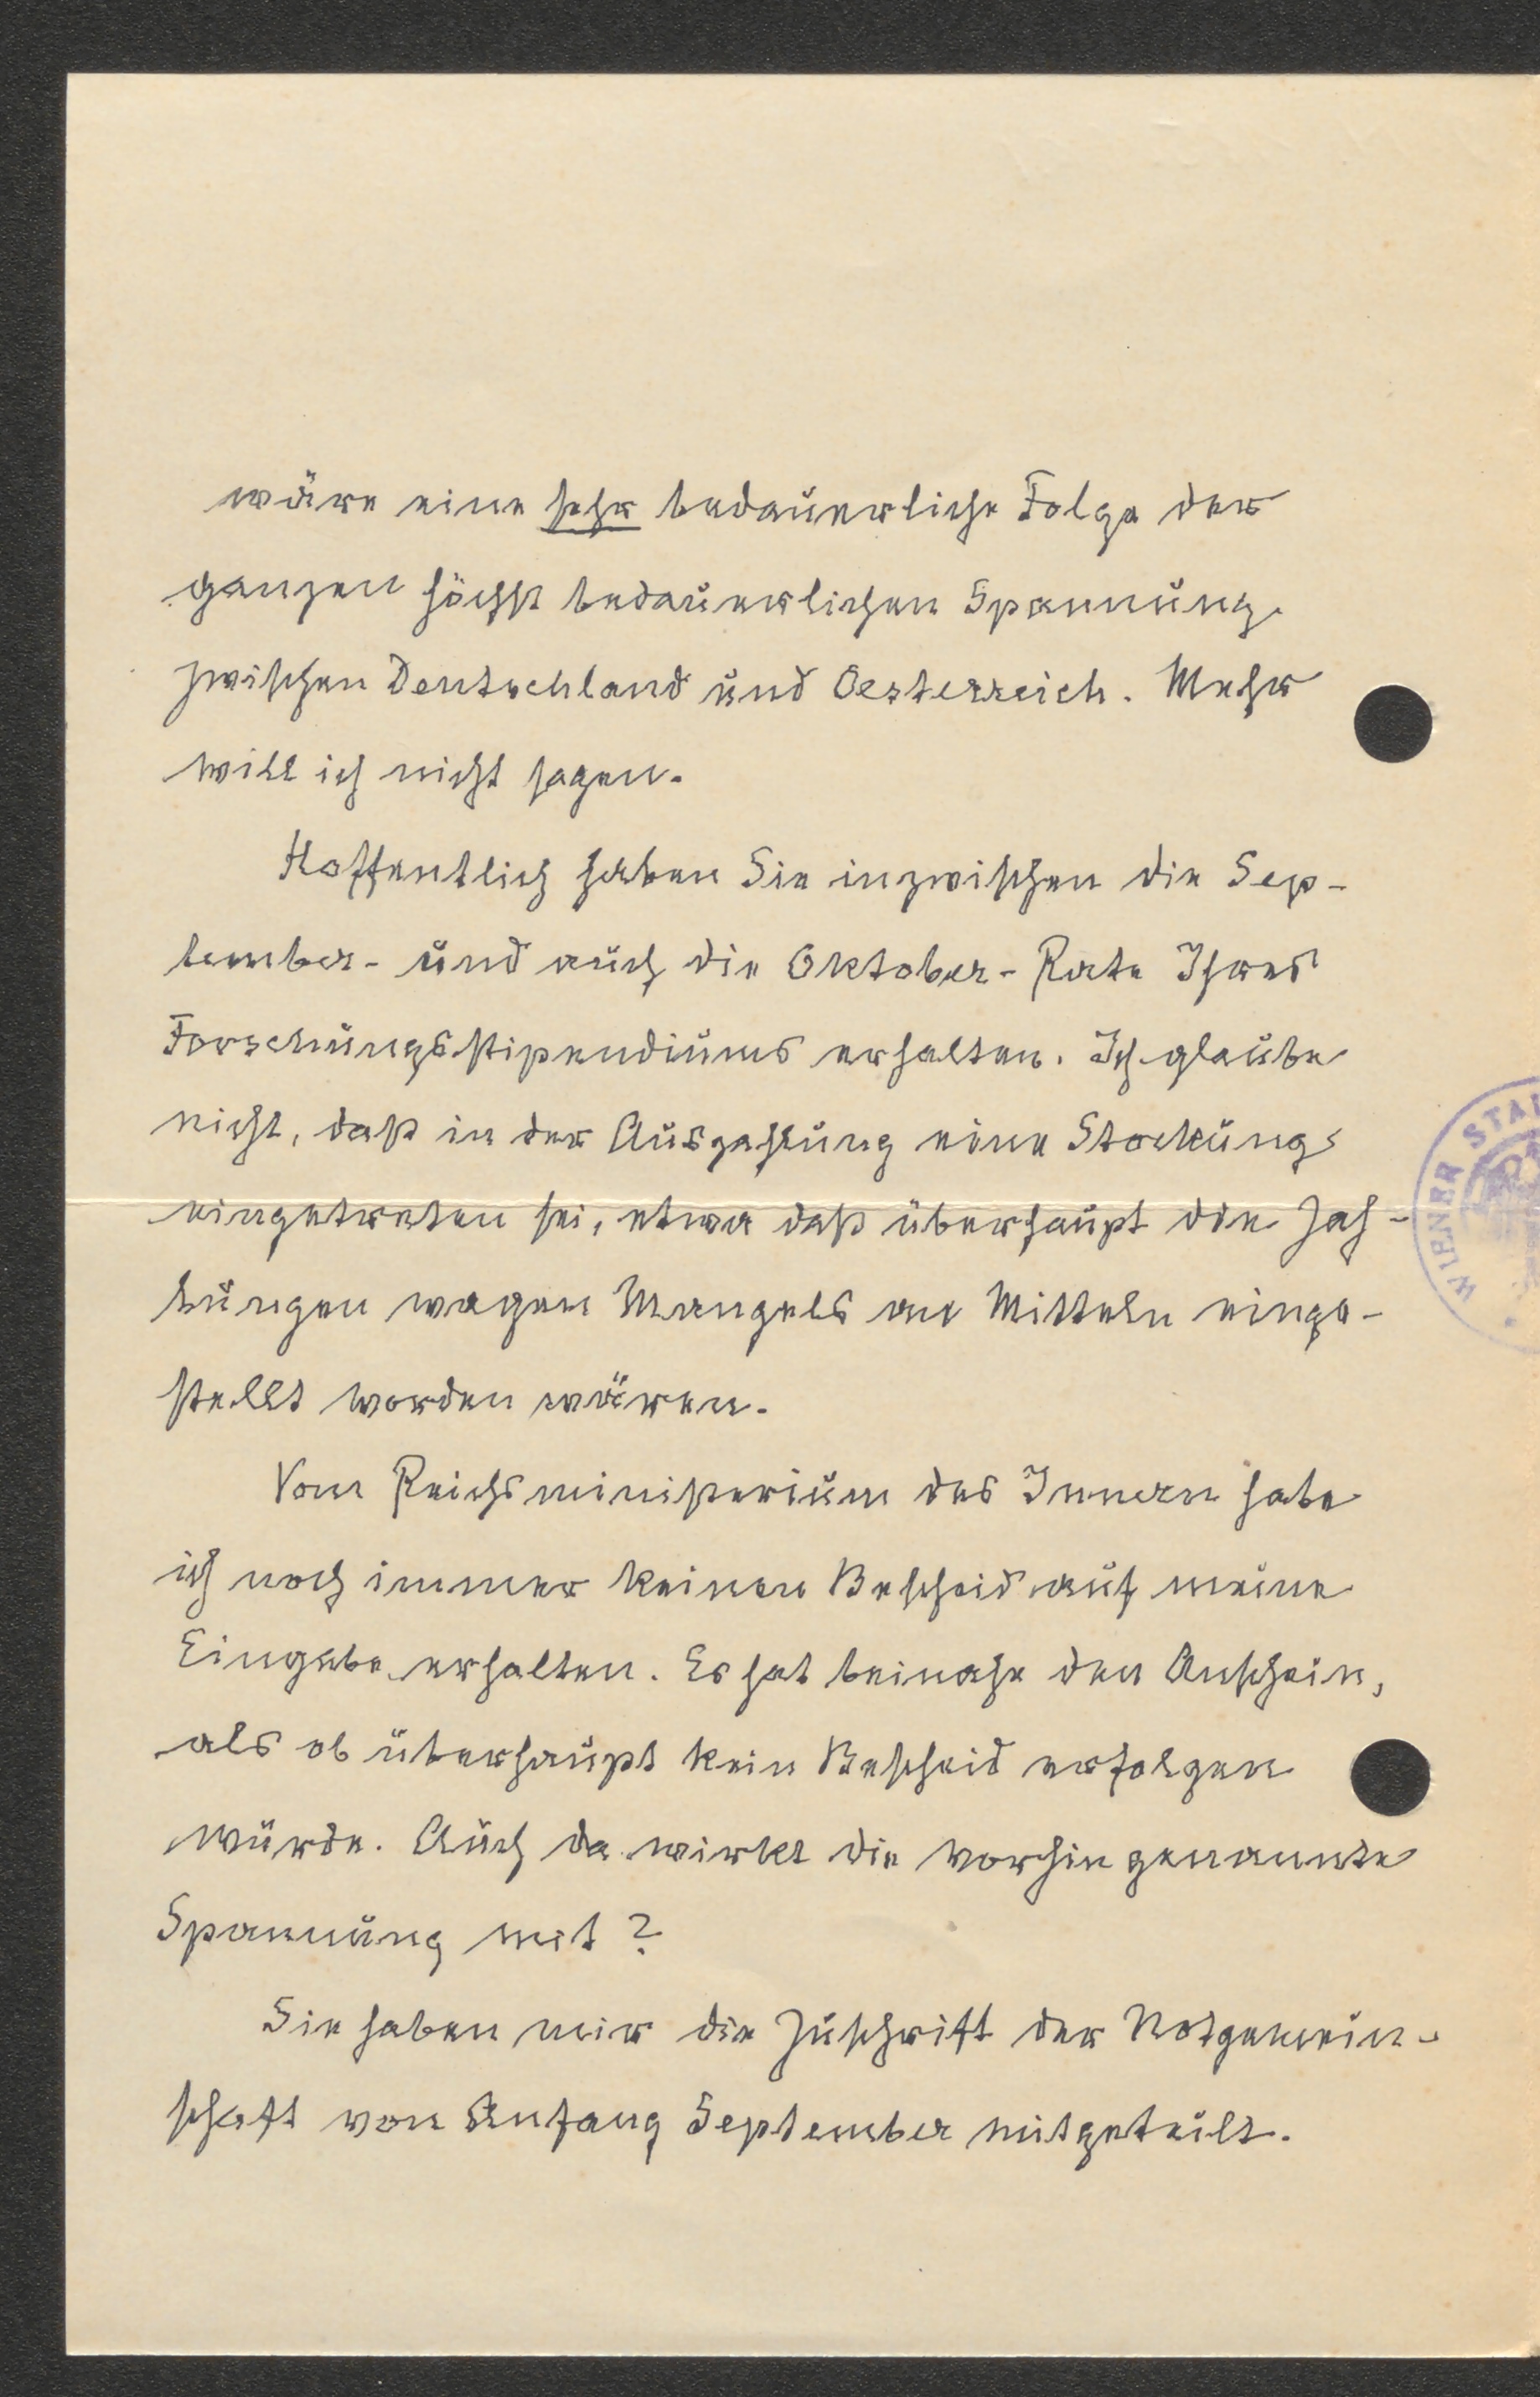 wäre eine sehr bedauerliche Folge der
ganzen höchst bedauerlichen Spannung
zwischen Deutschland und Oesterreich. Mehr
will ich nicht sagen.
Hoffentlich haben Sie inzwischen die Sep-
tember- und auch die Oktober-Rate Ihres
Forschungsstipendiums erhalten. Ich glaube
nicht, daß in der Auszahlung eine Stockung
eingetreten sei, etwa daß überhaupt die Zah-
lungen wegen Mangels an Mitteln einge-
stellt worden wären.
Vom Reichsministerium des Innern habe
ich noch immer keinen Bescheid auf meine
Eingabe erhalten. Es hat beinahe den Anschein,
als ob überhaupt kein Bescheid erfolgen
würde. Auch da wirkt die vorhin genannte
Spannung mit?
Sie haben mir die Zuschrift der Notgemein-
schaft von Anfang September mitgeteilt.
WIENER STA